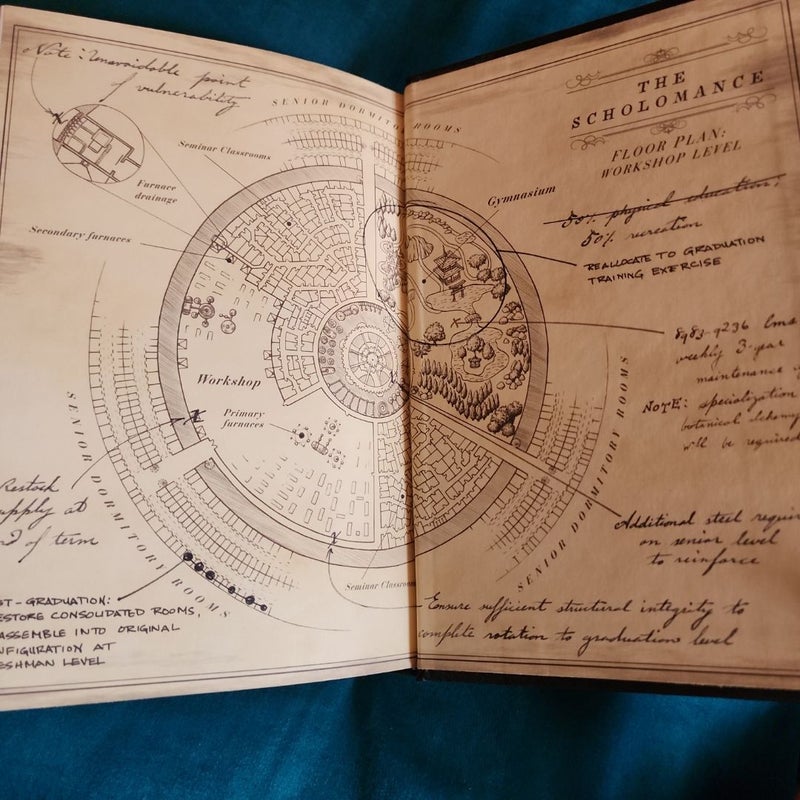 Note: Unavoidable point
of vulnerability
SENIOR DORMITORY ROOMS
Seminar Classrooms
Furnace
drainage
Secondary furnaces
Workshop
Primary
furnaces
SENIOR DORMITORY ROOMS
Restock
supply at
end of term
Seminar Classroom
ST-GRADUATION:
ESTORE CONSOLIDATED ROOMS,
ASSEMBLE INTO ORIGINAL
NFIGURATION AT
ESHMAN LEVEL
THE
SCHOLOMANCE
FLOOR PLAN:
WORKSHOP LEVEL
Gymnasium
50% physical education;
50% recreation
REALLOCATE TO GRADUATION
TRAINING EXERCISE
8983-9236 lms
weekly 3-year
maintenance
NOTE: specialization
botanical alchemy
will be required
SENIOR DORMITORY ROOMS
Additional steel requir
on senior level
to reinforce
Ensure sufficient structural integrity to
complete rotation to graduation level